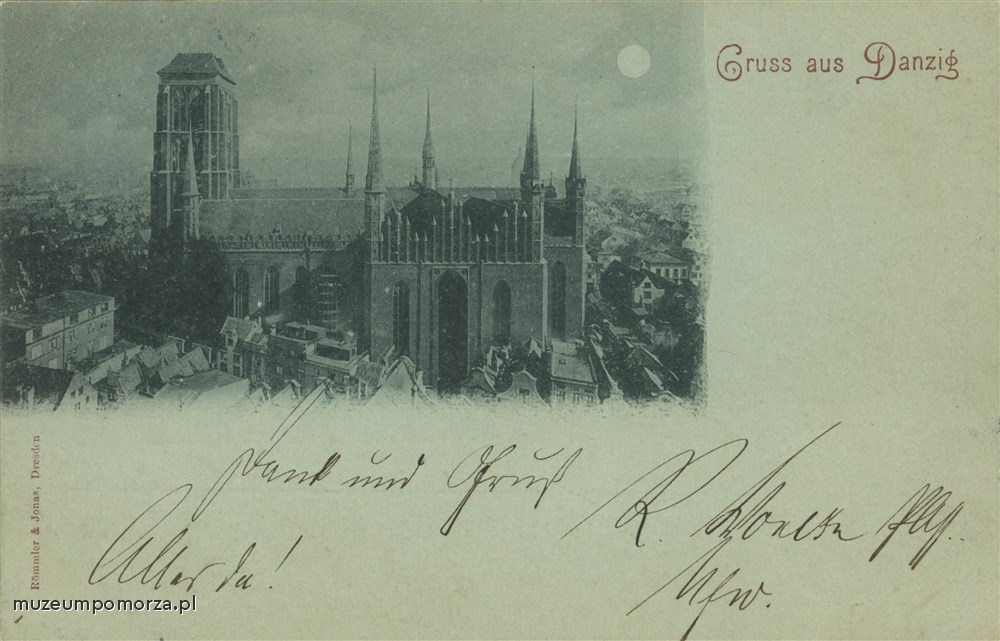 Gruss aus Danzig
Römmler & Jonas, Dresden
Dank und Gruß
Alles da!
muzeumpomorza.pl